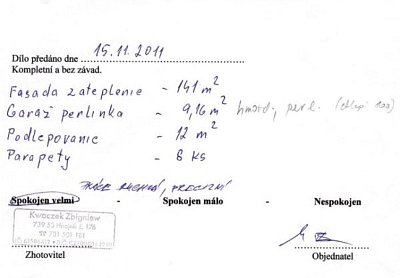 Dílo předáno dne 15.11.2011
Kompletní a bez závad.
Fasada zateplenie - 141 m²
Garaž perlinka - 9,16 m² hmozd, perl.
Podlepovanic - 12 m²
Parapety - 8 ks
PRÁCE RYCHLÁ, PRECIZNÍ
Spokojen velmi - Spokojen málo - Nespokojen
Kwaczek Zbigniew
739 53 Hnojník č. 176
Zhotovitel Objednatel